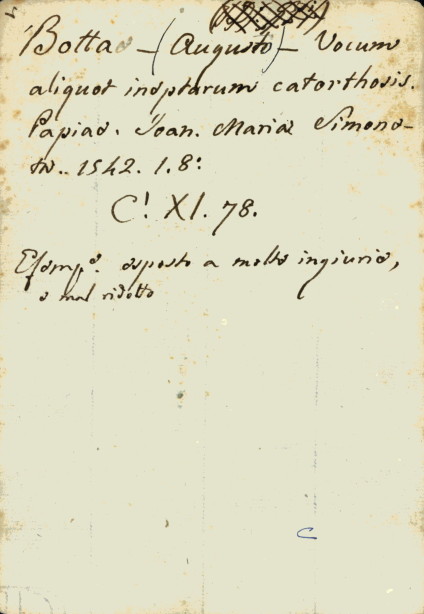 Bottae - (Augusto) - Vocum
aliquot ineptarum catorthosis.
Papiae. Joan. Mariae Simone-
ta.. 1542. 1. 8:
C! XI. 78.
Esemp.e esposto a molte ingiurie,
e mal ridotto
C